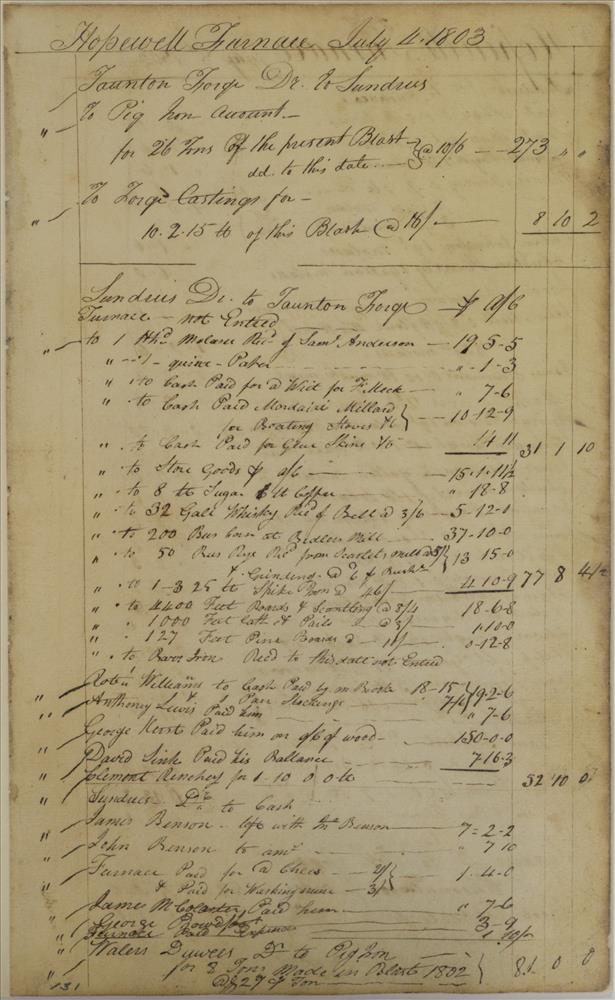 Hopewell Furnace July 4. 1803
Taunton Forge Dr. to Sundries
To Pig Iron Account —
for 26 Tons of the present Blast @ 10/6 — 273 " "
dd. to this date —
To Forge Castings for —
10. 2. 15 lb of this Blast @ 16/ — 8 10 2
Sundries Dr. to Taunton Forge — a/c
Furnace — not Entered
to 1 Hhd Molasses Recd of Saml Anderson — 19 5-5
" 1 quire Paper " -1-3
" to Cash Paid for a Writ for " 7-6
" to Cash Paid Millard — 10-12-9
for Beating Stoves
" to Cash Paid for Skins 14 11 31 1 10
" to Store Goods — 15.1.11½
" to 8 lb Sugar Coffee — " 18-8
" to 32 Galls Whisky Recd of Bell @ 3/6 — 5-12-1
" to 200 Bus Corn at Mill — 37-10-0
" to 50 Bus Rye Recd from Mill @ 13 15-0
& Grinding @
" to 1-3 25 lb Iron @ 46/ — 4 10-9 77 8
" to 4400 Feet Boards & Scantling @ 8/4 18-6-8
" 1000 Feet Lath & Pails @ 1.10-0
" 127 Feet Pine Boards @ 0-12-8
" to Barr Iron Recd to this date not Entered
Williams to Cash Paid by 18-15 19-2-6
Anthony Lewis 1 Pair Stockings 7/6
Paid him " 7-6
George Paid him on of wood — 150-0-0
David Paid his Ballance — 7 16-3
for 1 10 0 0 lb — 52 10 0
Sundries Drs to Cash
James Benson — left with Benson — 7-2-2
John Benson to amt " 7 10
Furnace Paid for a Cheese — 1-4-0
& Paid for — 3/
James Paid him — " 7-6
George 3-9
Furnace Paid Expences
Dewees Dr to Pig Iron —
for 3 Tons Made in Blast 1802 81 0 0
@ £27 Ton
131